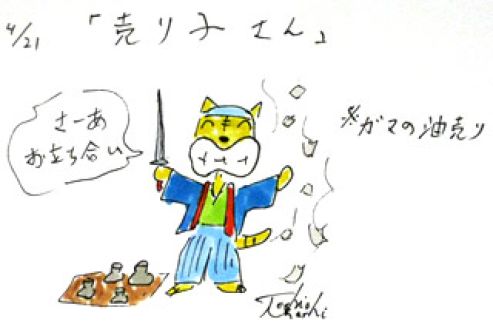 4/21 「売り子さん」
さーあ
お立ち合い
※ガマの油売り